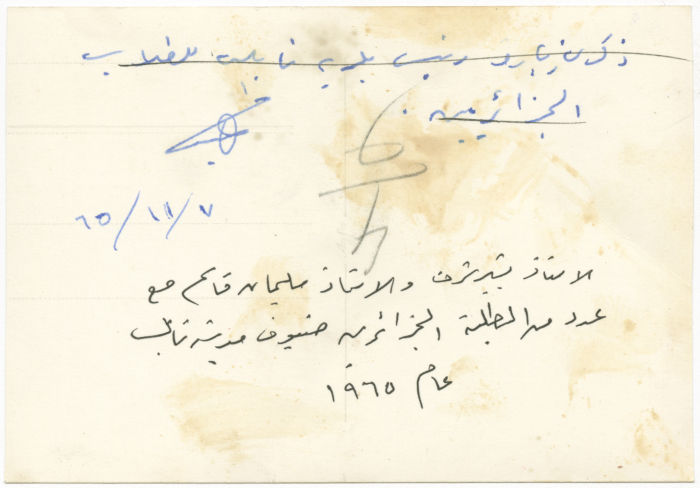 ذكرى زيارة رئيس بلدية نابلس للطلاب
الجزائريين .
٦٥/١١/٧
الاستاذ بشير شرف والاستاذ سليمان قاسم مع
عدد من الطلبة الجزائرين ضيوف مدينة نابلس
عام ١٩٦٥